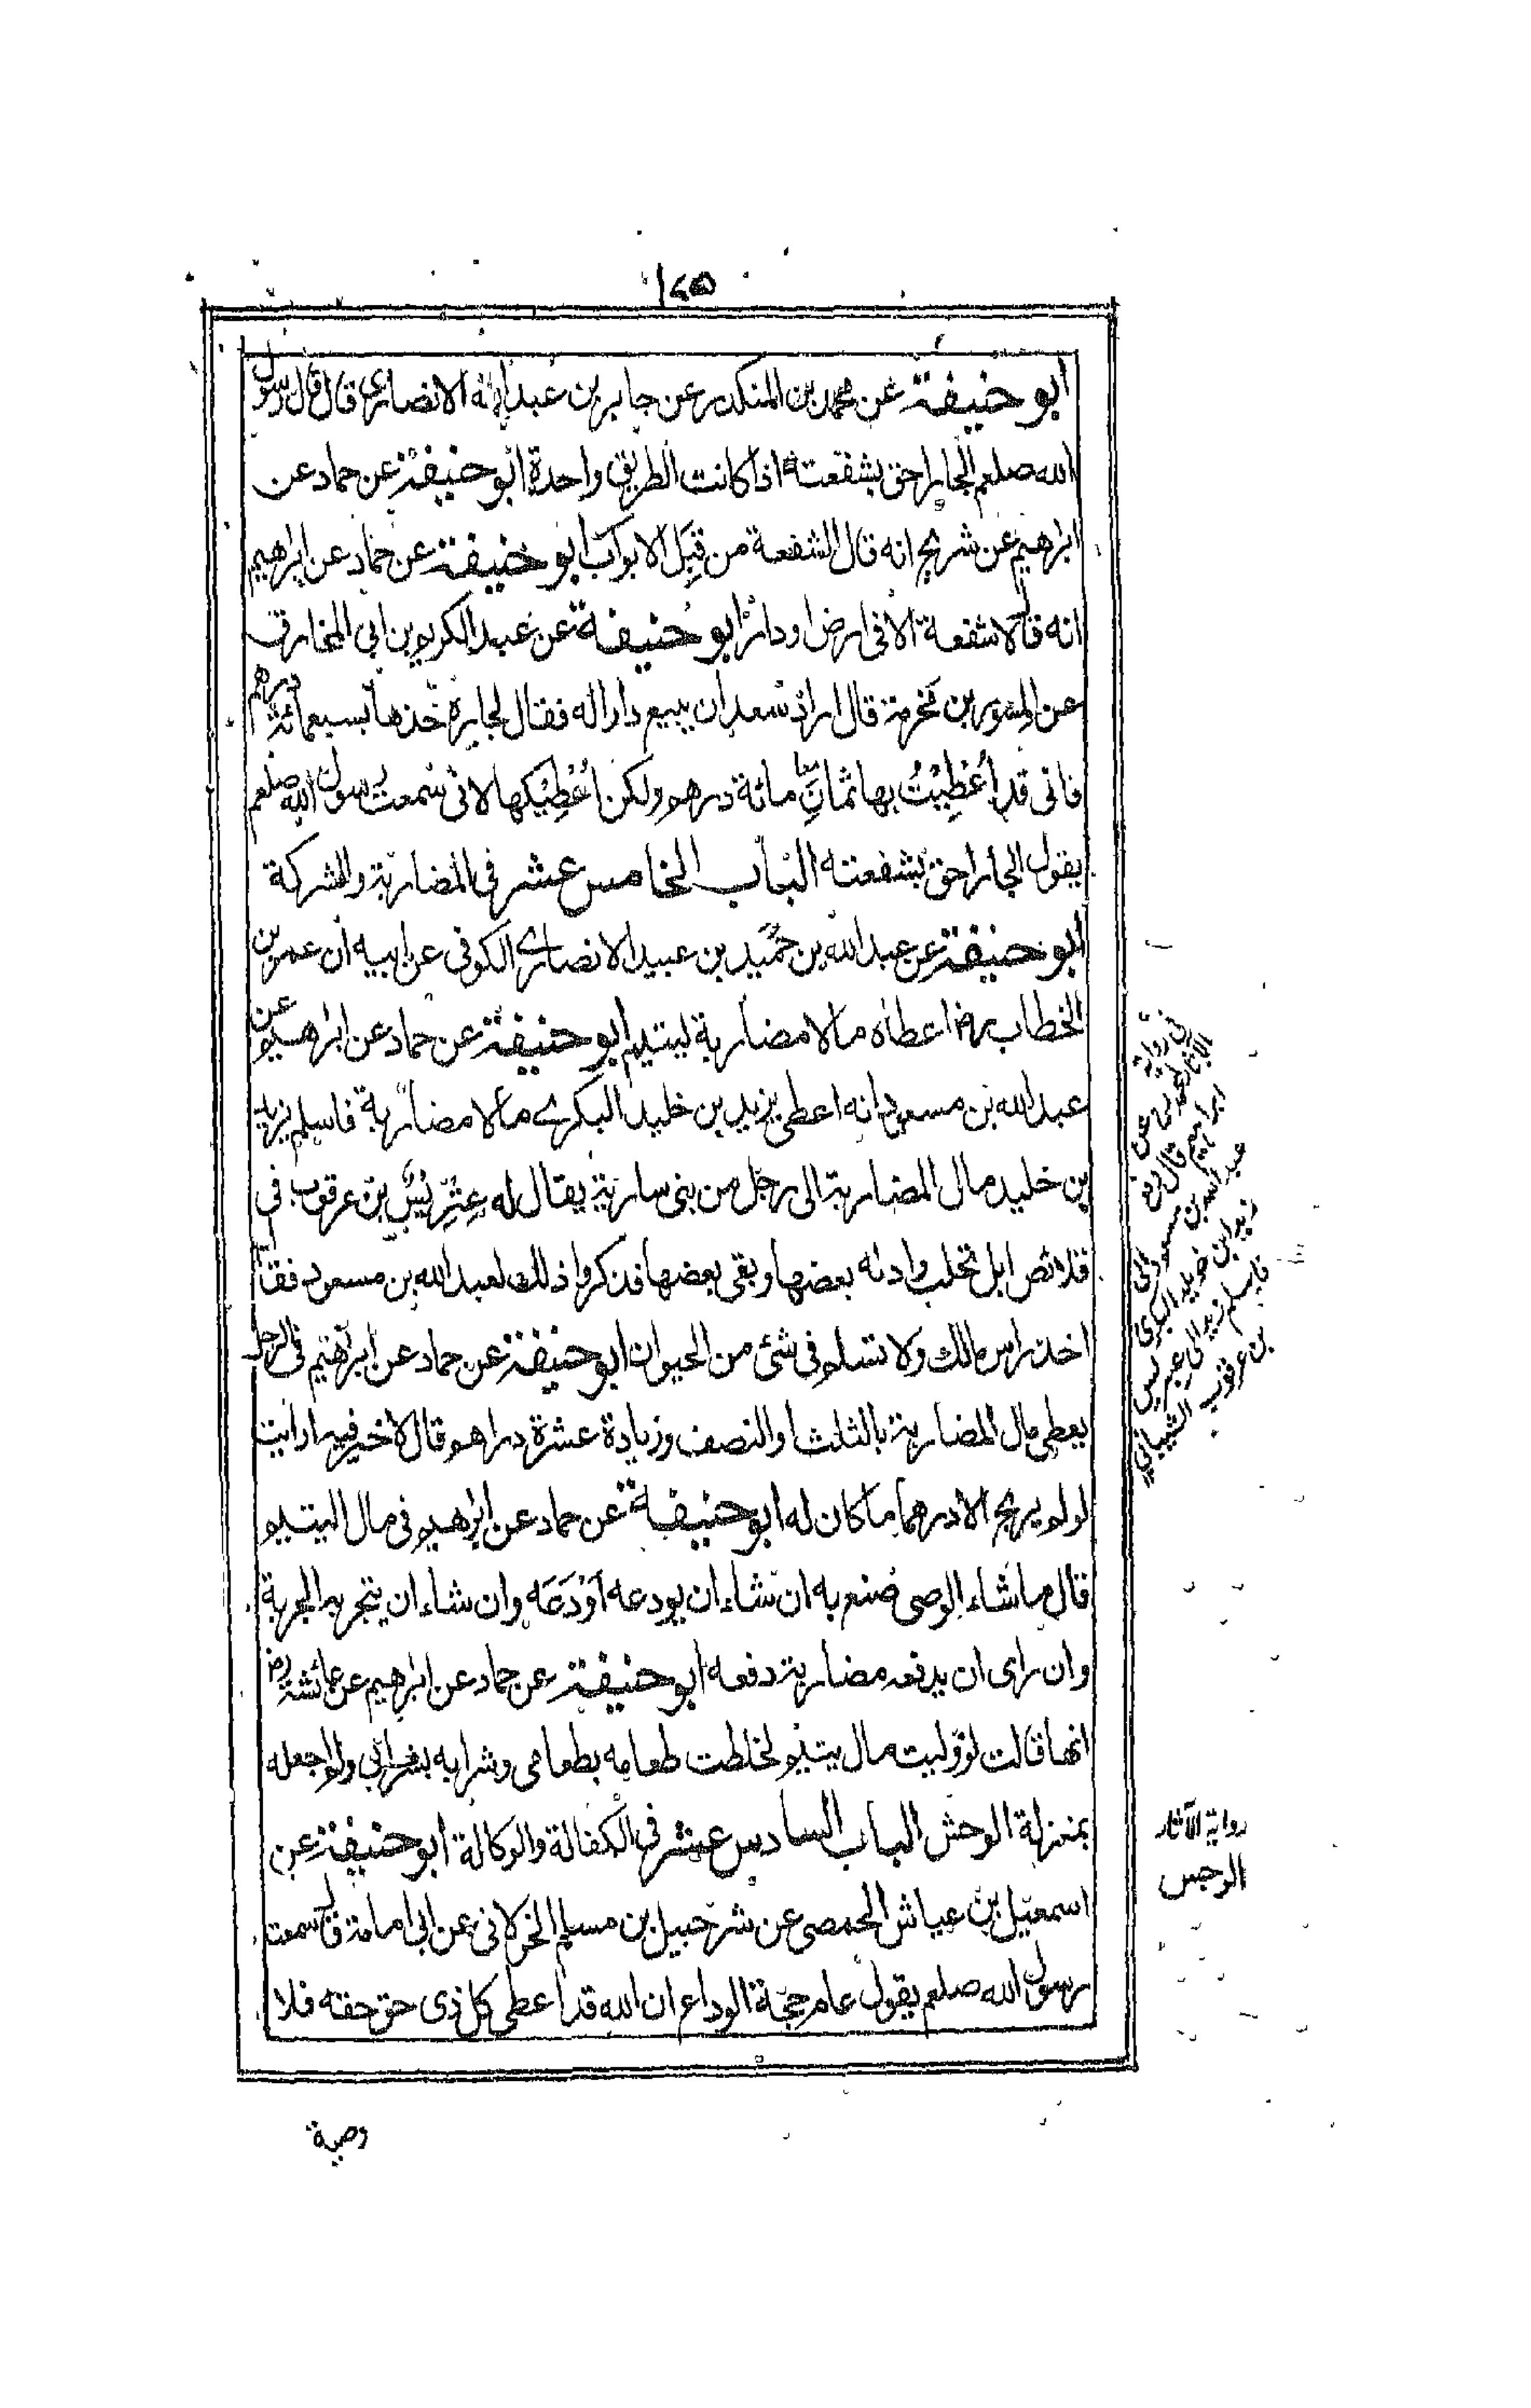 ١٤٥
ابو حنيفة عن محمد بن المنكدر عن جابر بن عبد الله الانصارى قال قال رسول
الله صلعم الجار احق بشفعته اذا كانت الطريق واحدة ابو حنيفة عن حماد عن
ابرهيم عن شريح انه قال الشفعة من قِبَل الابواب ابو حنيفة عن حماد عن ابراهيم
انه قال لا شفعة الا فى ارض او دار ابو حنيفة عن عبد الكريم بن ابى المخارق
عن المسور بن مخرمة قال اراد سعد ان يبيع دارا له فقال لجاره خذها بسبعمائة درهم
فانى قد اُعْطِيْتُ بها ثمان مائة درهم ولكن اُعْطِيْكها لانى سمعت رسول الله صلعم
يقول الجار احق بشفعته الباب الخامس عشر فى المضاربة والشركة
ابو حنيفة عن عبد الله بن حُميد بن عبيد الانصارى الكوفى عن ابيه ان عمر بن
الخطاب رض اعطاه مالا مضاربة ليتيم ابو حنيفة عن حماد عن ابرهيم عن
عبد الله بن مسعود انه اعطى يزيد بن خليد البكرى مالا مضاربة فاسلم يزيد
بن خليد مال المضاربة الى رجل من بنى سارية يقال له عِتْرِيْسُ بن عرقوب فى
قلائص ابل تحلب وادته بعضها وبقى بعضها فذكروا ذلك لعبد الله بن مسعود فقال
اخذ راس مالك ولا تسلم فى شئ من الحيوان ابو حنيفة عن حماد عن ابرٰهيم فى الرجل
يعطى مال المضاربة بالثلث او النصف وزيادة عشرة دراهم قال لا خير فيه ارايت
لو لم يربح الا درهما ما كان له ابو حنيفة عن حماد عن ابرهيم فى مال اليتيم
قال ما شاء الوصى صنع به ان شاء ان يودعه اَوْدَعَه وان شاء ان يتجر به اتجر به
وان راى ان يدفعه مضاربة دفعه ابو حنيفة عن حماد عن ابرٰهيم عن عائشة رض
انها قالت لو وليت مال يتيم لخلطت طعامه بطعامى وشرابه بشرابى ولم اجعله
بمنزلة الوحش الباب السادس عشر فى الكفالة والوكالة ابو حنيفة عن
اسمعيل بن عياش الحمصى عن شرحبيل بن مسلم الخولانى عن ابى امامة قال سمعت
رسول الله صلعم يقول عام حجة الوداع ان الله قد اعطى كل ذى حق حقه فلا
وصية
فى رواية
ابراهيم قال
عبد الله بن مسعود
زيد ابن خويلد البكرى
فاسلم زيد الى
بن عرقوب الشيبانى
رواية الآثار
الرجس